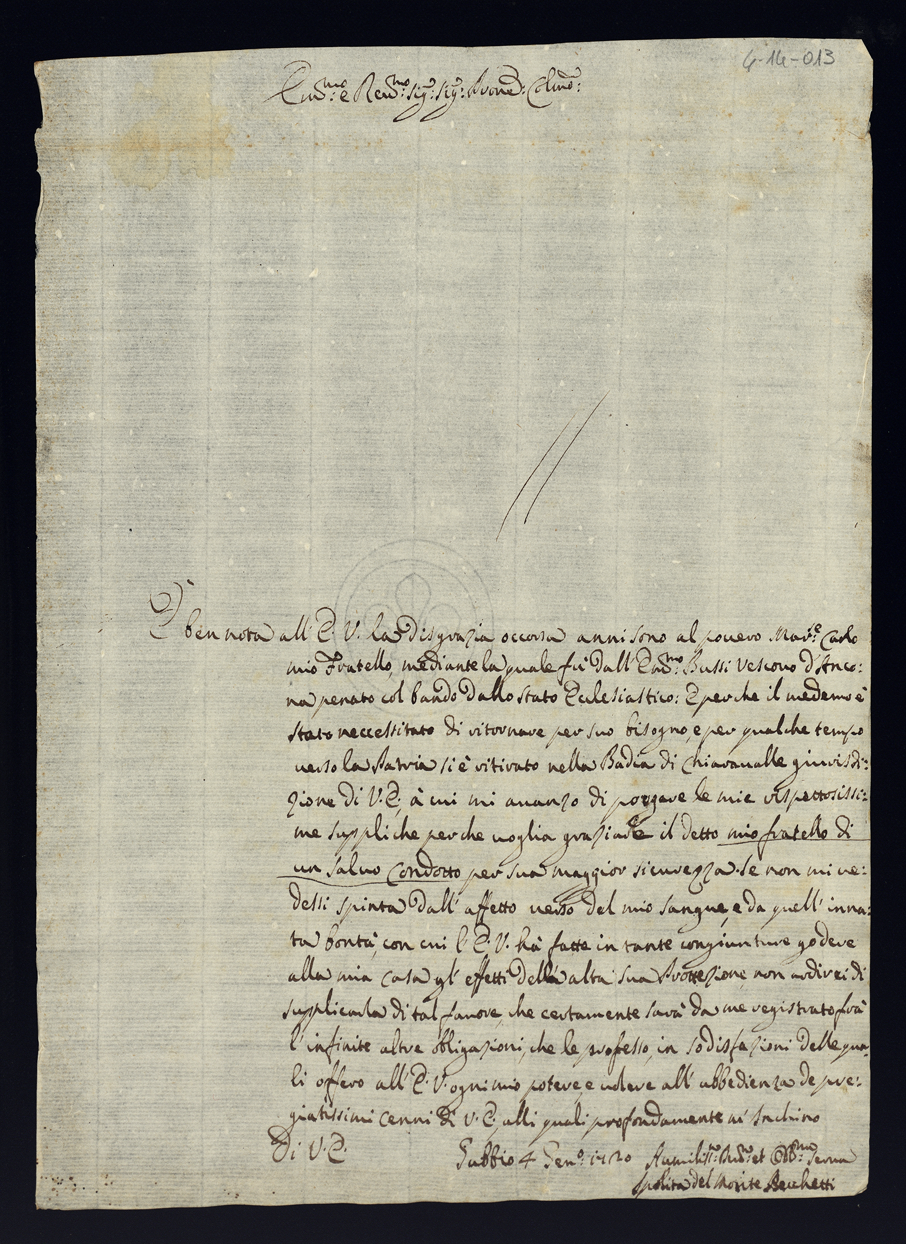 4-14-013
Em.mo e Rev.mo Sig.r Sig.r Prone Colmo:
È ben nota all' E. V. la disgrazia occorsa anni sono al povero Mar.e Carlo
mio Fratello, mediante la quale fù dall' Em.mo Bussi Vescovo d'Anco:
na penato col bando dallo stato Ecclesiastico: E perche il medemo è
stato neccessitato di ritornare per suo bisogno, e per qualche tempo
verso la Patria si è ritirato nella Badia di Chiaravalle giurisdi:
zione di V. E. à cui mi avanzo di porgere le mie rispettosissi:
me suppliche perche voglia graziare il detto mio fratello di
un salvo condotto per sua maggior sicurezza. Se non mi ve:
dessi spinta dall' affetto verso del mio sangue, e da quell' inna:
ta bontà, con cui l' E. V. hà fatte in tante congiunture godere
alla mia casa gl' effetti dell' alta sua Protezione, non ardirei di
supplicarla di tal favore, che certamente sarà da me registrato frà
l' infinite altre obligazioni, che le professo, in sodisfazioni delle qua:
li offero all' E. V. ogni mio potere, e volere all' ubbedienza de pre:
giatissimi cenni di V. E., alli quali profondamente m' Inchino
Di V. E. Gubbio 4 Gen.o 1720 Humiliss.ma Dev.ma et Obb.ma Serva
Ipolita del Monte Becchetti